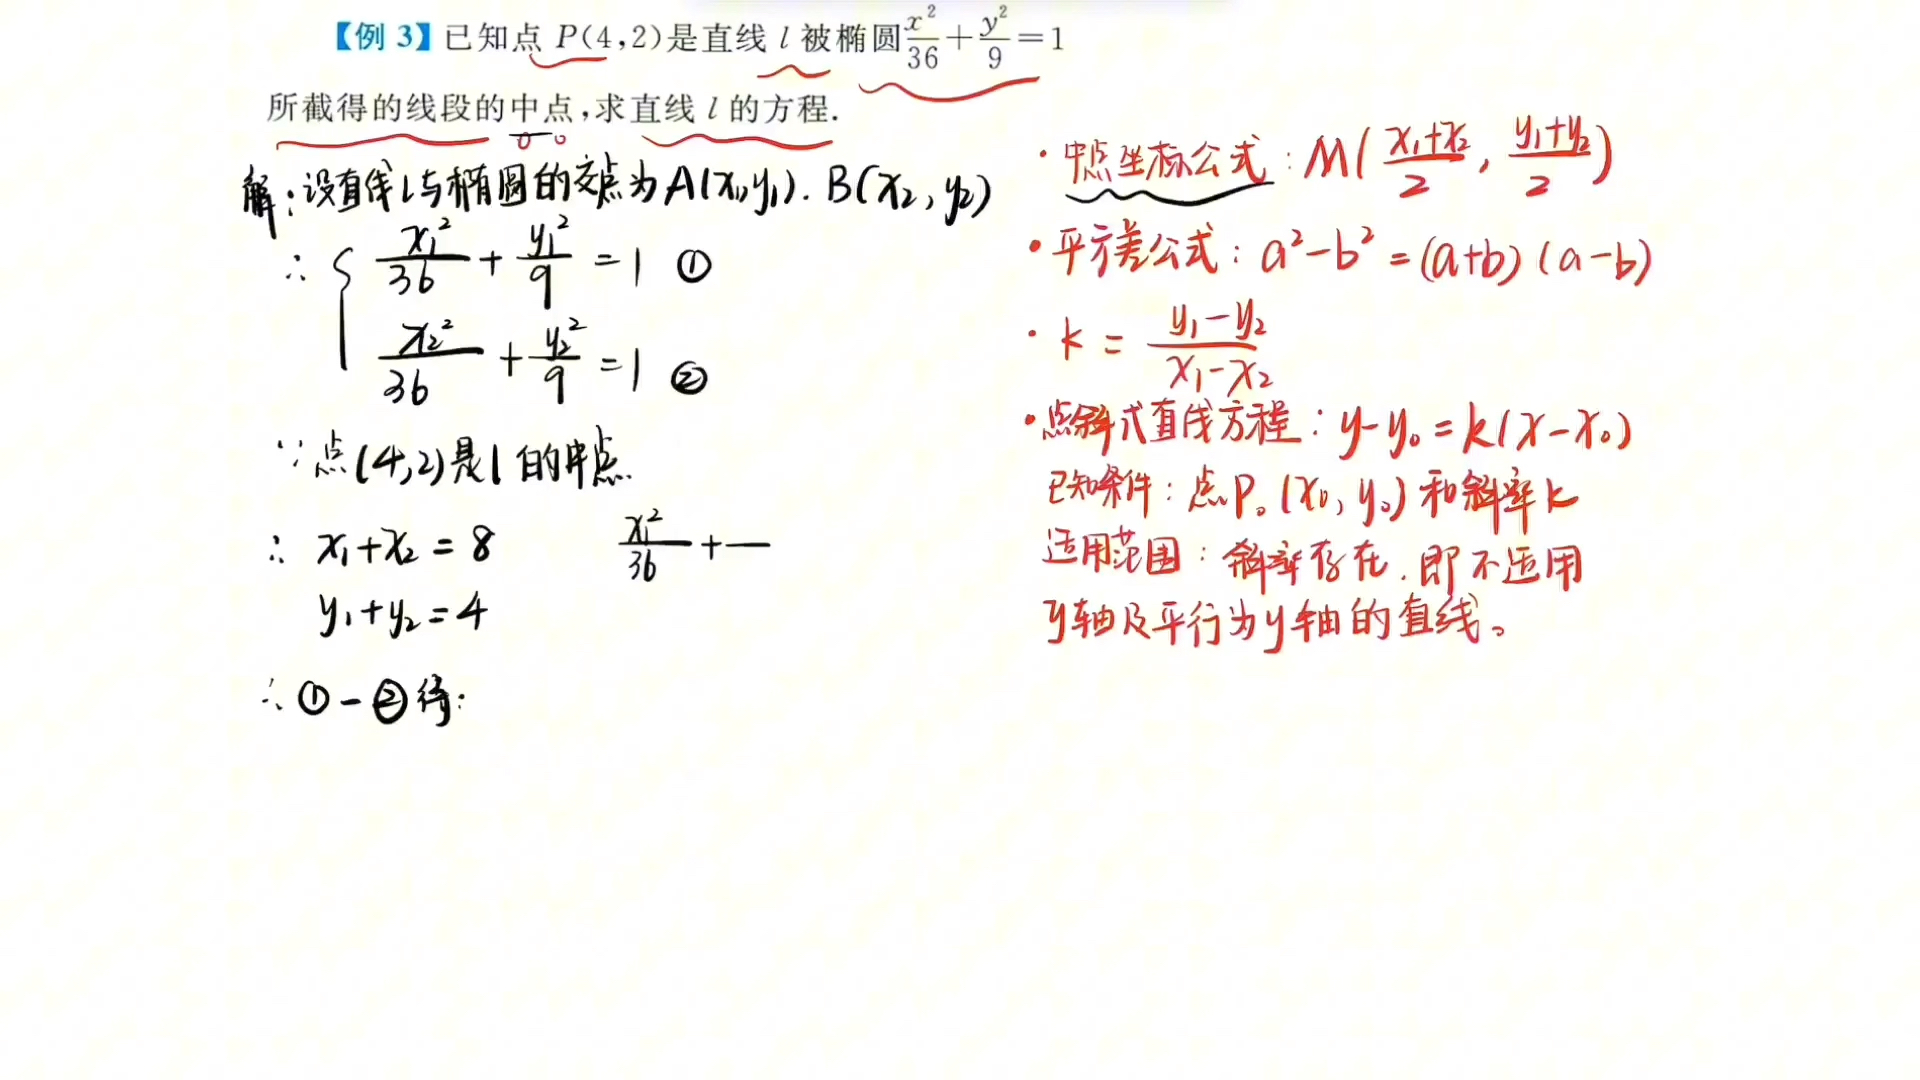 【例 3】已知点 P(4,2)是直线 l 被椭圆 x²/36 + y²/9 = 1
所截得的线段的中点,求直线 l 的方程.
解:设直线 l 与椭圆的交点为 A(x₁,y₁). B(x₂,y₂)
∴ { x₁²/36 + y₁²/9 = 1 ①
x₂²/36 + y₂²/9 = 1 ②
∵点(4,2)是 l 的中点.
∴ x₁+x₂ = 8 x₁²/36 + —
y₁+y₂ = 4
∴ ① - ② 得:
· 中点坐标公式: M( (x₁+x₂)/2 , (y₁+y₂)/2 )
· 平方差公式: a²-b² = (a+b)(a-b)
· k = (y₁-y₂)/(x₁-x₂)
· 点斜式直线方程: y-y₀ = k(x-x₀)
已知条件: 点P₀(x₀, y₀)和斜率k
适用范围: 斜率存在, 即不适用
y轴及平行为y轴的直线。